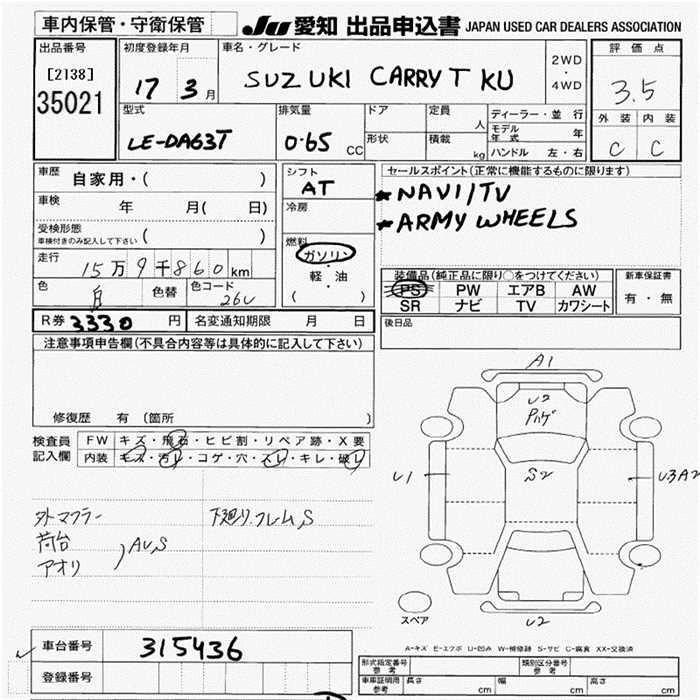 車内保管・守衛保管 JU 愛知 出品申込書 JAPAN USED CAR DEALERS ASSOCIATION
出品番号 初度登録年月 車名・グレード 2WD・4WD 評価点
[2138] 35021 17 3月 SUZUKI CARRY T KU 3.5
型式 排気量 ドア 定員 人 ディーラー・並行 外装 内装
LE-DA63T 0.65 CC 形状 積載 kg モデル年式 年 C C
ハンドル 左・右
車歴 自家用・( ) シフト AT セールスポイント(正常に機能するものに限ります)
車検 年 月( 日) 冷房 *NAVI/TV
受検形態 ( ) *ARMY WHEELS
車検付きのみ記入して下さい
走行 15万9千860km 燃料 ガソリン・軽油 ( )
装備品(純正品に限り○をつけてください) 新車保証書
PS PW エアB AW 有・無
SR ナビ TV カワシート
色 白 色替 色コード 26U
R券 3330円 名変通知期限 月 日 後日品
注意事項申告欄(不具合内容等は具体的に記入して下さい)
修復歴 有 (箇所 )
検査員記入欄 FW キズ・飛石・ヒビ割・リペア跡・X要
内装 キズ・汚レ・コゲ・穴・スレ・キレ・破レ
外マフラー 下廻り.フレームS
荷台
アオリ )AU,S
A1
U2
Pハゲ
U1 S2 U3A2
U2
スペア
A-キズ E-エクボ U-凹み W-補修跡 S-サビ C-腐食 XX-交換済
車台番号 315436
登録番号
形式指定番号 参考 類別区分番号 参考
車庫証明用 参考 長さ cm 幅 cm 高さ cm